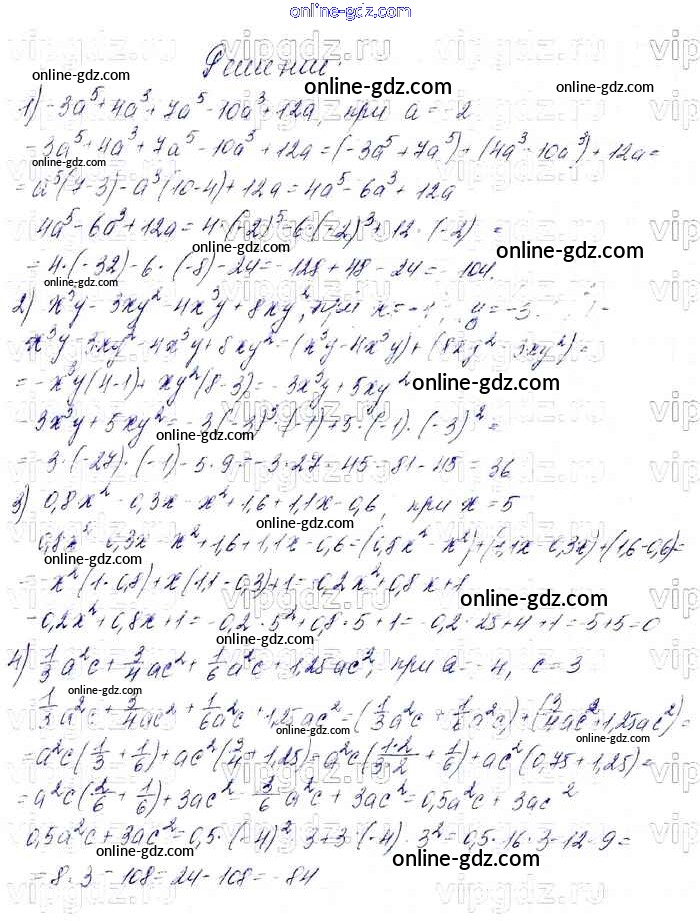 online-gdz.com
Решение:
1) -3a⁵+4a³+7a⁵-10a³+12a, при a=-2
-3a⁵+4a³+7a⁵-10a³+12a=(-3a⁵+7a⁵)+(4a³-10a³)+12a=
=a⁵(7-3)-a³(10-4)+12a=4a⁵-6a³+12a
4a⁵-6a³+12a=4·(-2)⁵-6·(-2)³+12·(-2)=
=4·(-32)-6·(-8)-24=-128+48-24=-104.
2) x³y-3xy²-4x³y+8xy², при x=-1, y=-3.
x³y-3xy²-4x³y+8xy²=(x³y-4x³y)+(8xy²-3xy²)=
=-x³y(4-1)+xy²(8-3)=-3x³y+5xy²
-3x³y+5xy²=-3(-3)³·(-1)+5·(-1)·(-3)²=
=-3·(-27)·(-1)-5·9=-3·27-45=81-45=36
3) 0,8x²-0,3x-x²+1,6+1,1x-0,6, при x=5
0,8x²-0,3x-x²+1,6+1,1x-0,6=(0,8x²-x²)+(1,1x-0,3x)+(1,6-0,6)=
=-x²(1-0,8)+x(1,1-0,3)+1=-0,2x²+0,8x+1
-0,2x²+0,8x+1=-0,2·5²+0,8·5+1=-0,2·25+4+1=-5+5=0
4) 1/3a²c+3/4ac²+1/6a²c+1,25ac², при a=-4, c=3
1/3a²c+3/4ac²+1/6a²c+1,25ac²=(1/3a²c+1/6a²c)+(3/4ac²+1,25ac²)=
=a²c(1/3+1/6)+ac²(3/4+1,25)=a²c(1·2/3·2+1/6)+ac²(0,75+1,25)=
=a²c(2/6+1/6)+3ac²=3/6a²c+3ac²=0,5a²c+3ac²
0,5a²c+3ac²=0,5·(-4)²·3+3·(-4)·3²=0,5·16·3-12·9=
=8·3-108=24-108=-84